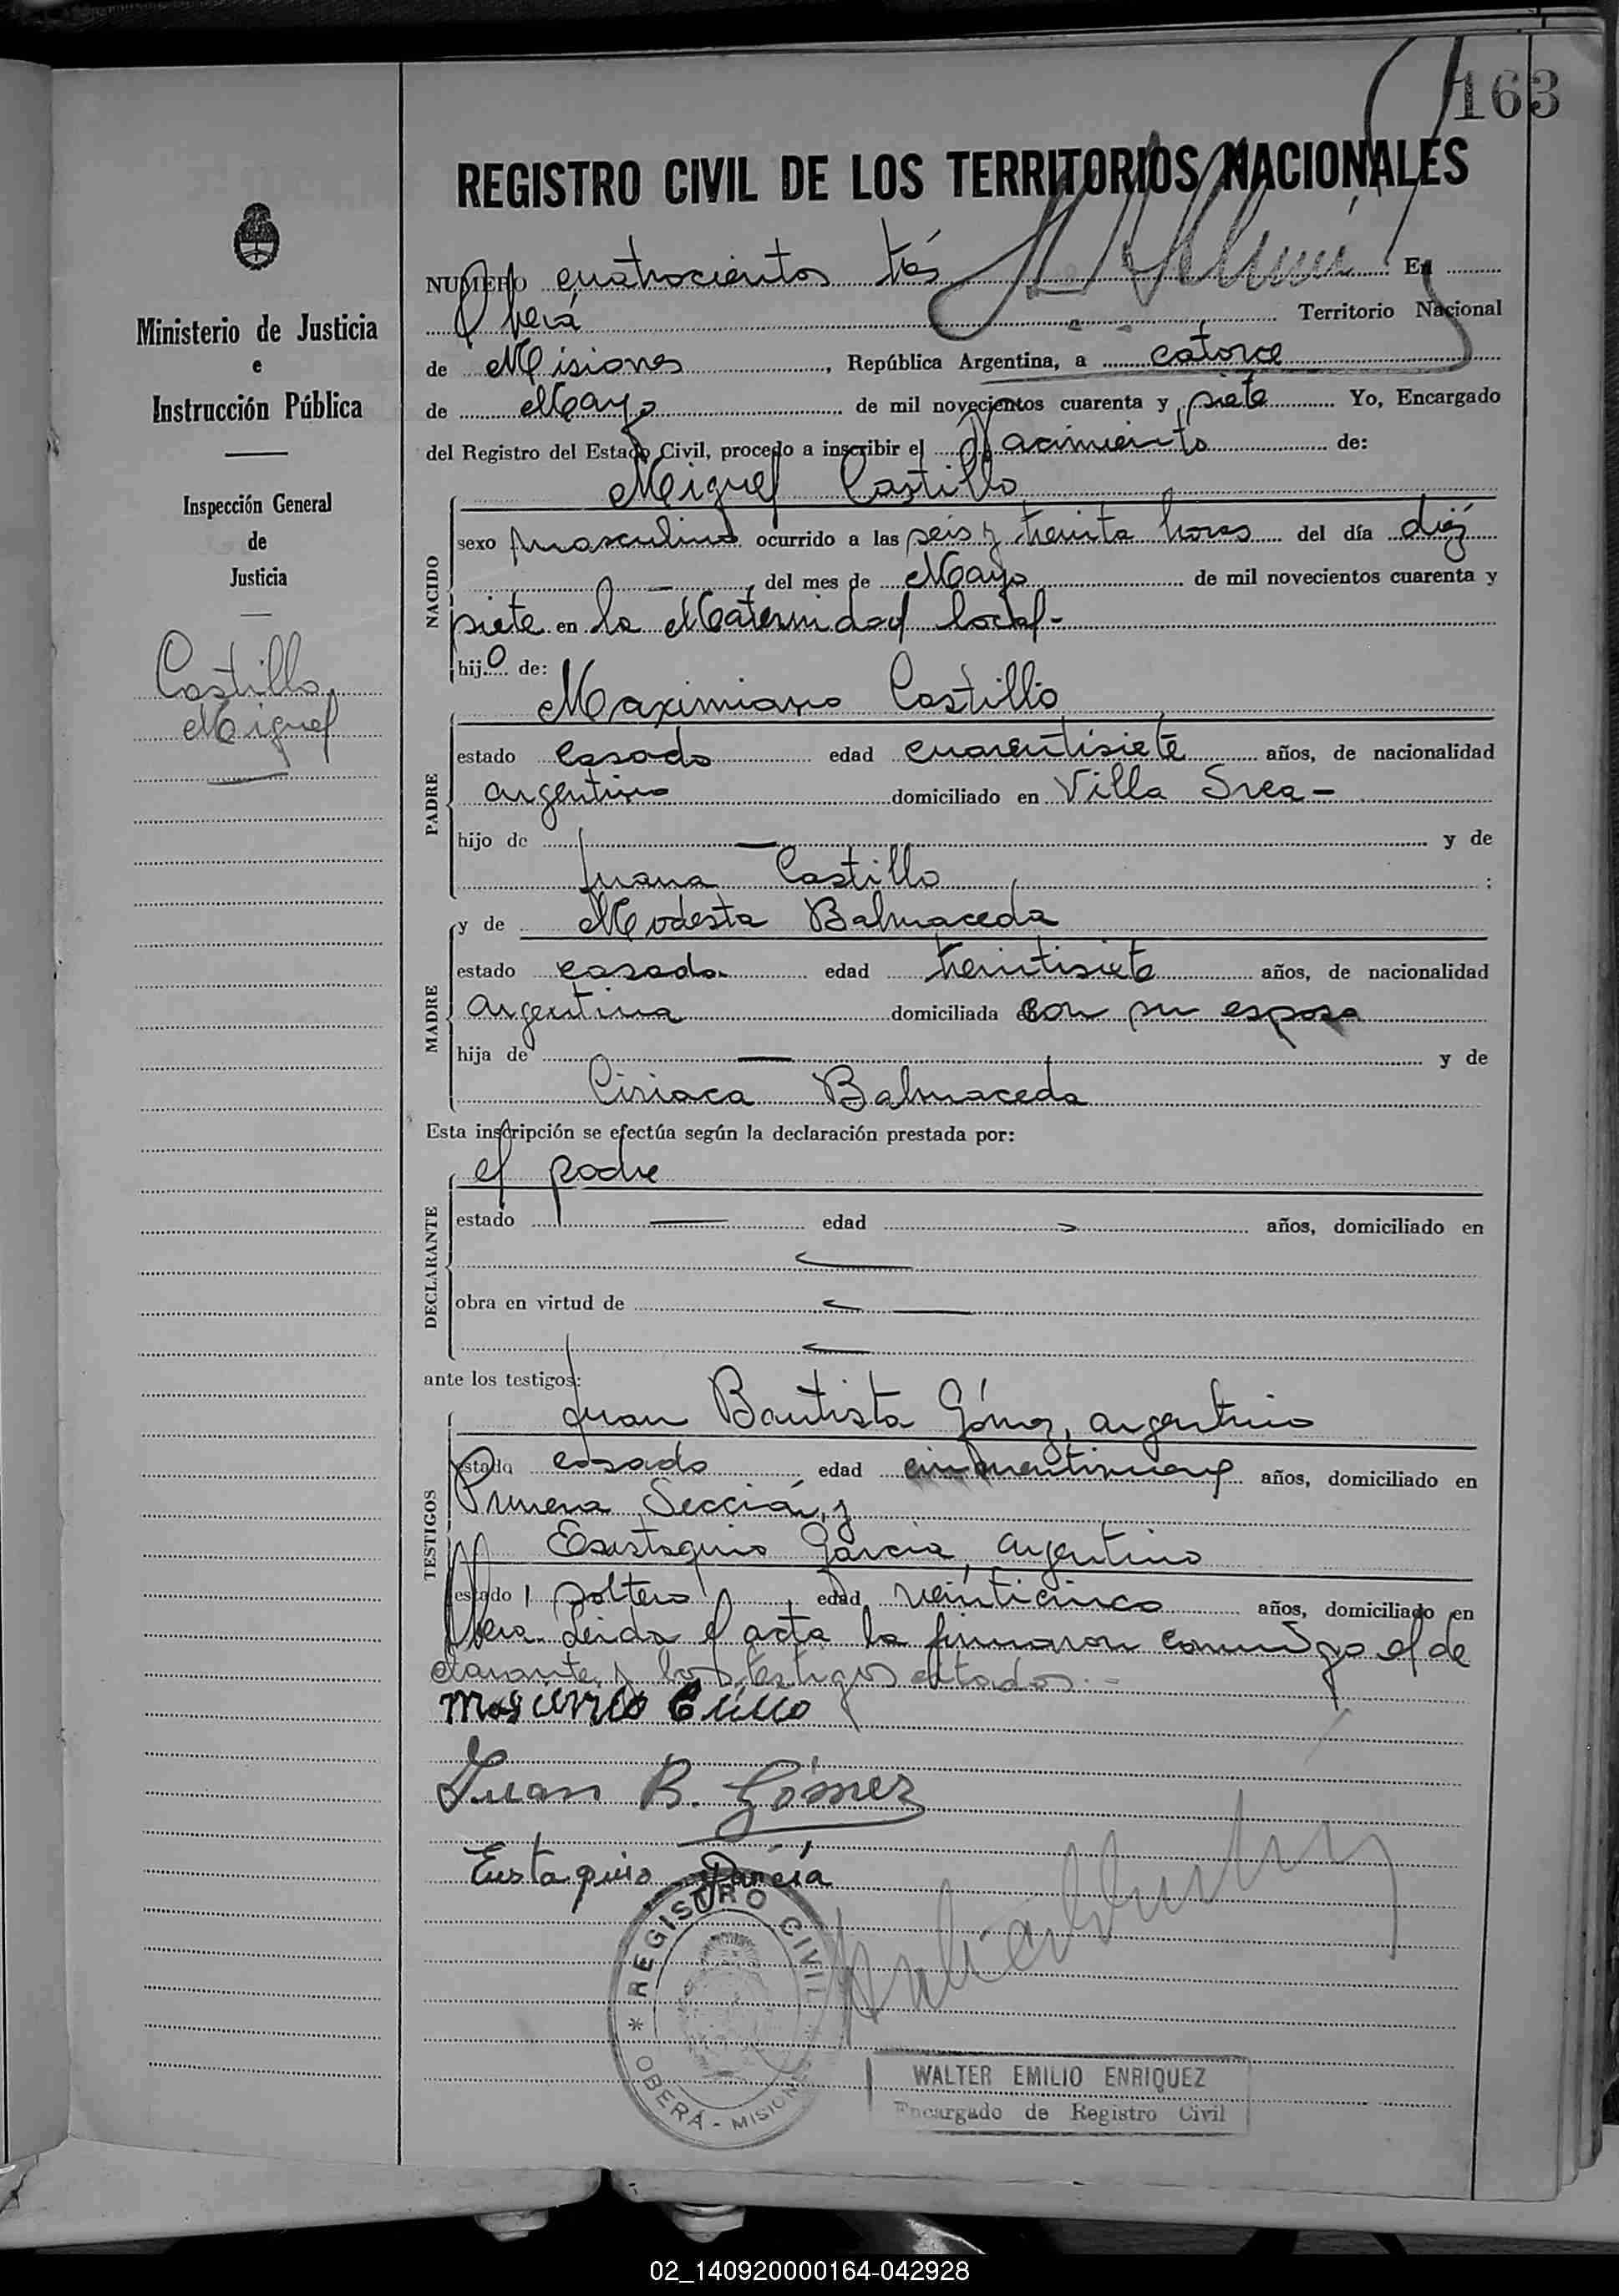 163
REGISTRO CIVIL DE LOS TERRITORIOS NACIONALES
NUMERO cuatrocientos trés En
Oberá Territorio Nacional
de Misiones, República Argentina, a catorce
de Mayo de mil novecientos cuarenta y siete Yo, Encargado
del Registro del Estado Civil, procedo a inscribir el Nacimiento de:
Miguel Castillo
NACIDO
sexo masculino ocurrido a las seis y treinta horas del día diéz
—, del mes de Mayo de mil novecientos cuarenta y
siete en la Maternidad local-
hijo de:
Maximiano Castillo
PADRE
estado casado edad cuarentisiete años, de nacionalidad
argentino domiciliado en Villa Srea-
hijo de — y de
Juana Castillo;
y de Modesta Balmaceda
MADRE
estado casada edad treintisiete años, de nacionalidad
argentina domiciliada con su esposo
hija de — y de
Ciriaca Balmaceda
Esta inscripción se efectúa según la declaración prestada por:
el padre
DECLARANTE
estado — edad años, domiciliado en
obra en virtud de —
ante los testigos:
Juan Bautista Gómez, argentino
TESTIGOS
estado casado edad años, domiciliado en
Primera Sección, y
Eustaquio García, argentino
estado soltero edad veinticinco años, domiciliado en
Oberá. Leida el acta la firmaron conmigo el de
clarante y los testigos citados.-
Juan B. Gómez
Eustaquio García
REGISTRO CIVIL
OBERÁ - MISIONES
WALTER EMILIO ENRIQUEZ
Encargado de Registro Civil
Ministerio de Justicia
e
Instrucción Pública
Inspección General
de
Justicia
Castillo
Miguel
02_140920000164-042928